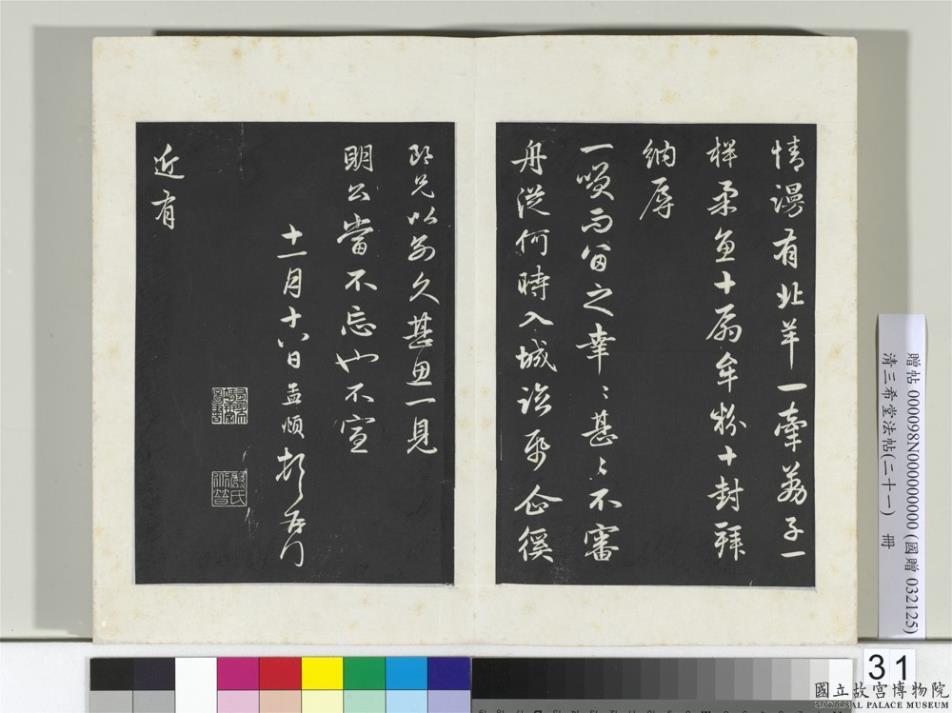 情謾有北羊一牽荔子一
样柔魚十扇牟粉十封拜
納辱
一咲而留之幸〻甚〻不審
舟從何時入城 企徯
兄以別久甚思一見
明公當不忘也不宣
十一月十八日孟頫頓首
近有
贈帖 000098N000000000 (國贈 032125)
清三希堂法帖(二十一) 冊
31
國立故宮博物院
NATIONAL PALACE MUSEUM